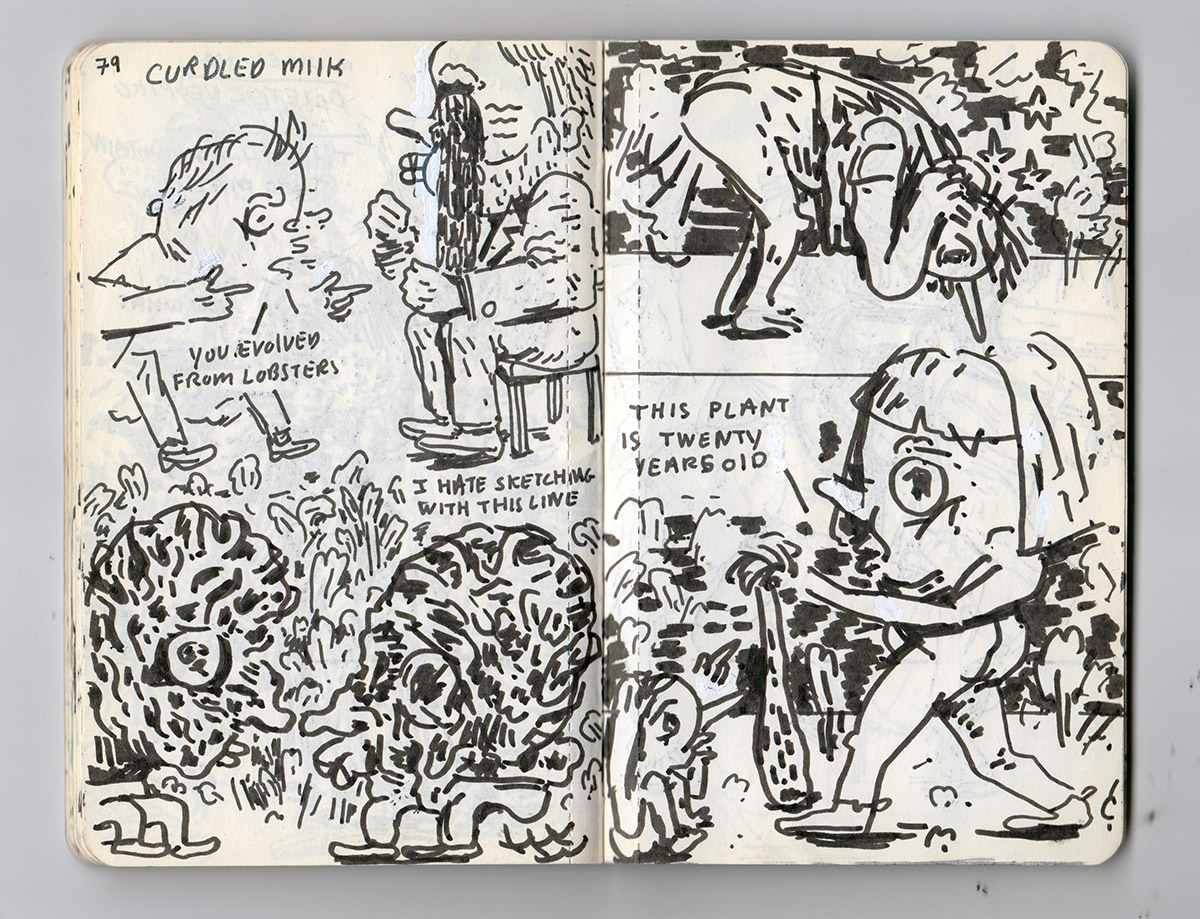 79 CURDLED MILK
YOU EVOLVED
FROM LOBSTERS
I HATE SKETCHING
WITH THIS LINE
THIS PLANT
IS TWENTY
YEARS OLD